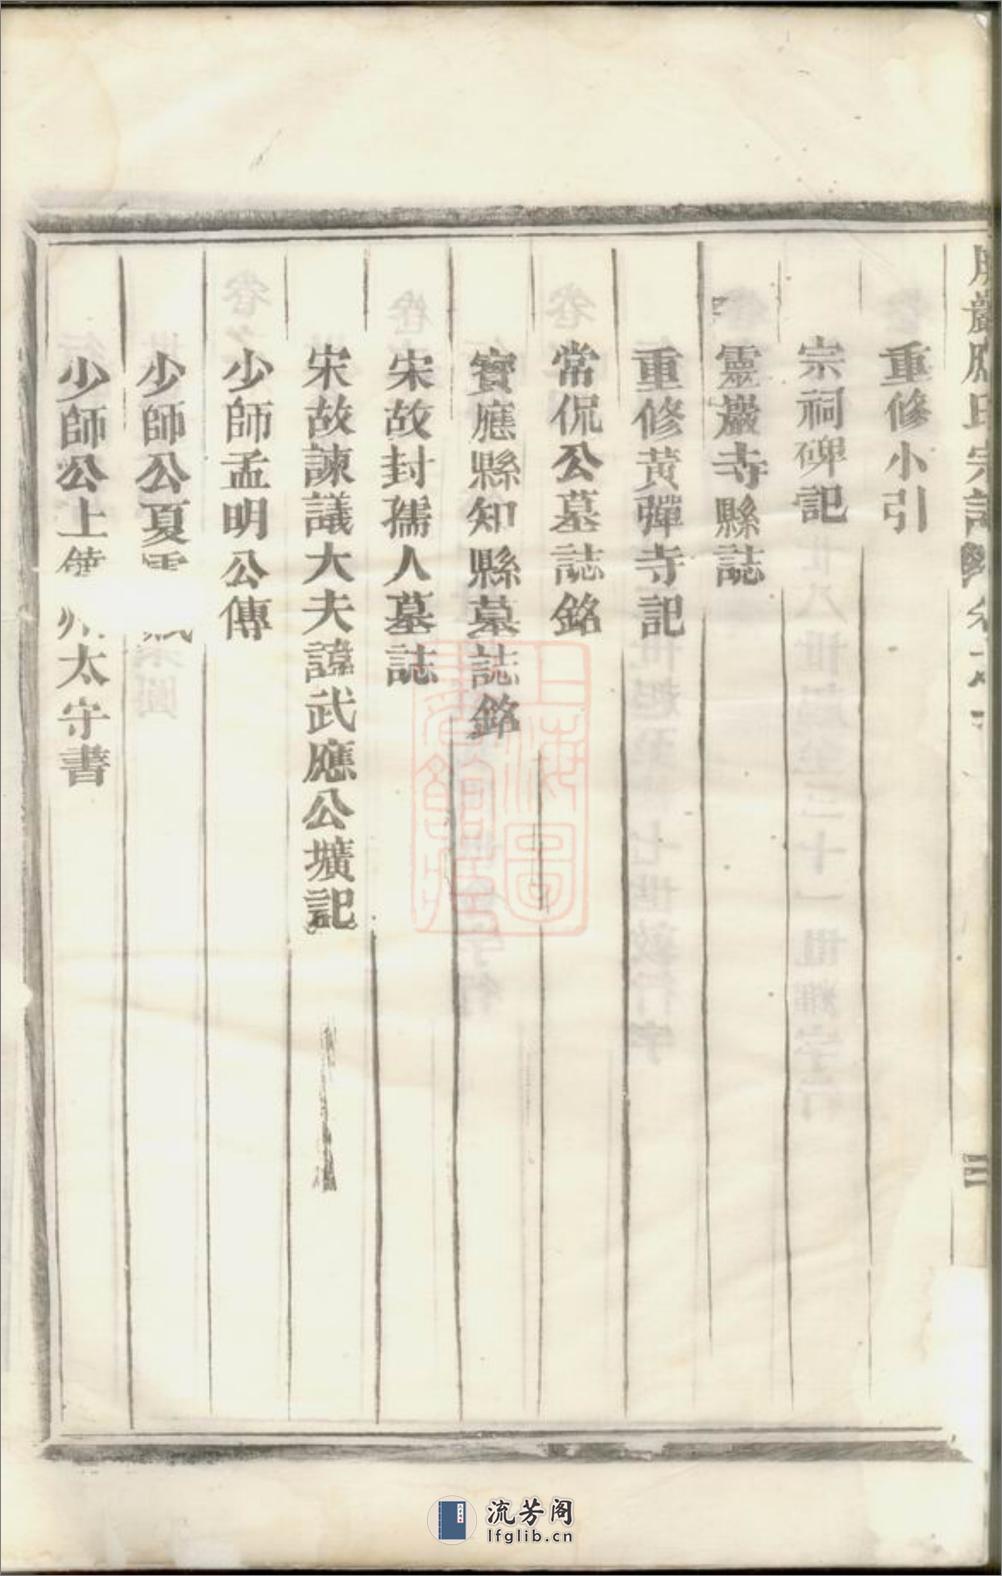 應氏宗譜
重修小引
宗祠碑記
靈巖寺縣誌
重修黃彈寺記
常侃公墓誌銘
寶應縣知縣墓誌銘
宋故封孺人墓誌
宋故諫議大夫諱武應公壙記
少師孟明公傳
少師公夏
少師公上太守書
二
上海圖書館藏
流芳阁
lfglib.cn